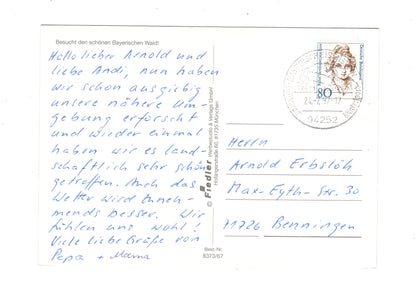 Besucht den schönen Bayerischen Wald!
Hallo lieber Arnold und
liebe Andi, nun haben
wir schon ausgiebig
unsere nähere Um-
gebung erforscht
und wieder einmal
haben wir es land-
schaftlich sehr schön
getroffen. Auch das
Wetter wird zuneh-
mends besser. Wir
fühlen uns wohl!
Viele liebe Grüße von
Papa + Mama
© Fiedler
Best-Nr.
8373/67
80
94252
Herrn
Arnold Erbslöh
Max-Eyth-Str. 30
71726 Benningen